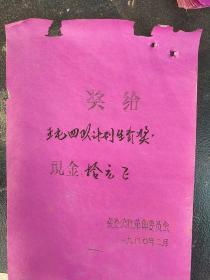 奖给
王屯四队计划生育奖.
现金:拾元正
公社革命委员会
一九八〇年二月